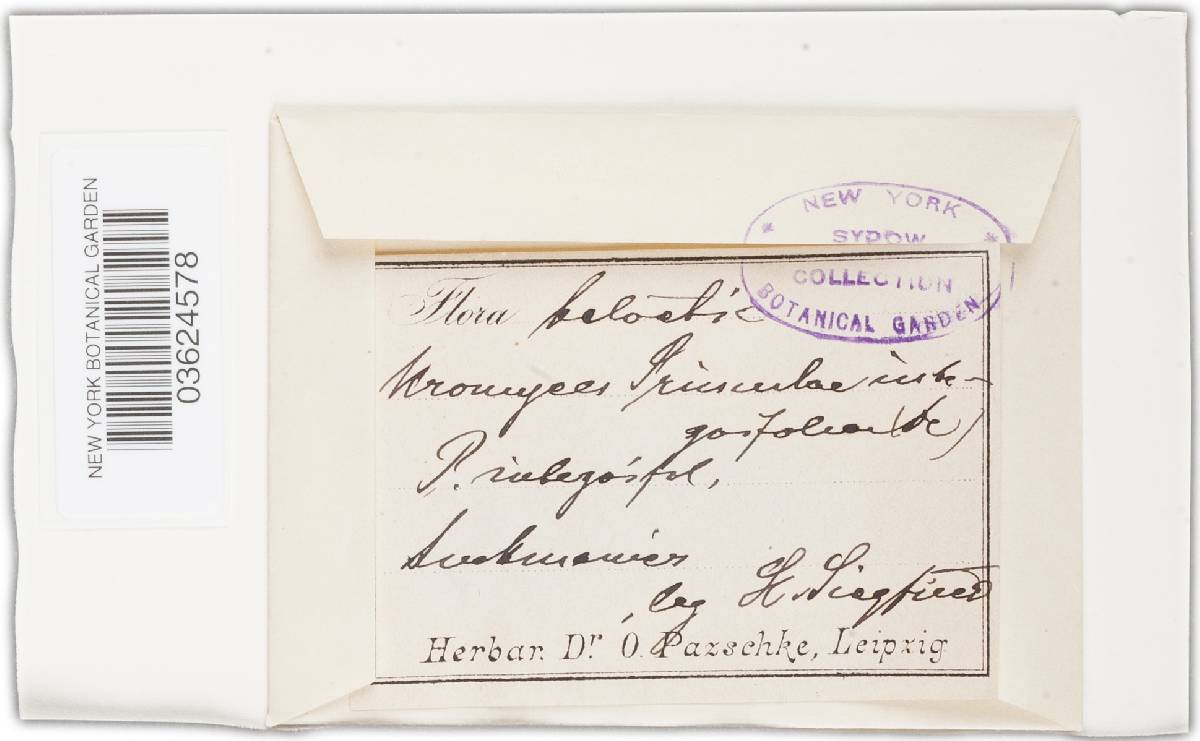 NEW YORK BOTANICAL GARDEN
03624578
NEW YORK
SYDOW
COLLECTION
BOTANICAL GARDEN
Flora helvetic
Uromyces Primulae inte-
grifoliae (Dc)
P. integrifol,
leg H. Siegfried
Herbar. Dr. O. Pazschke, Leipzig